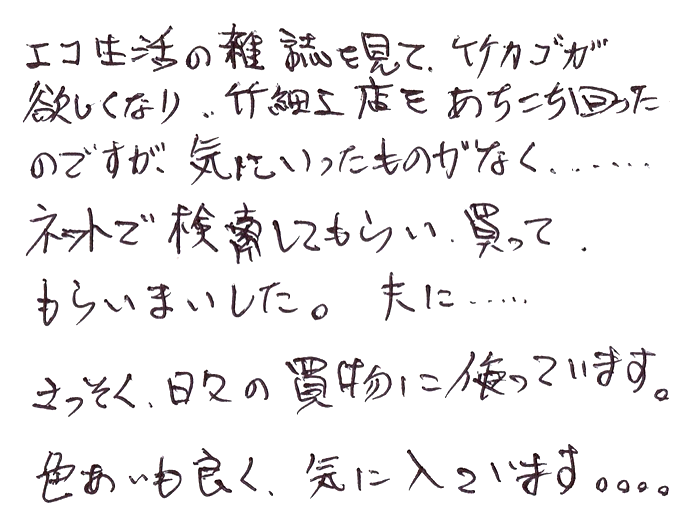 エコ生活の雑誌を見て、竹カゴが
欲しくなり、竹細工店をあちこち回った
のですが、気にいったものがなく……
ネットで検索してもらい、買って、
もらいまいした。 夫に……
さっそく、日々の買物に使っています。
色あいも良く、気に入っています。。。。